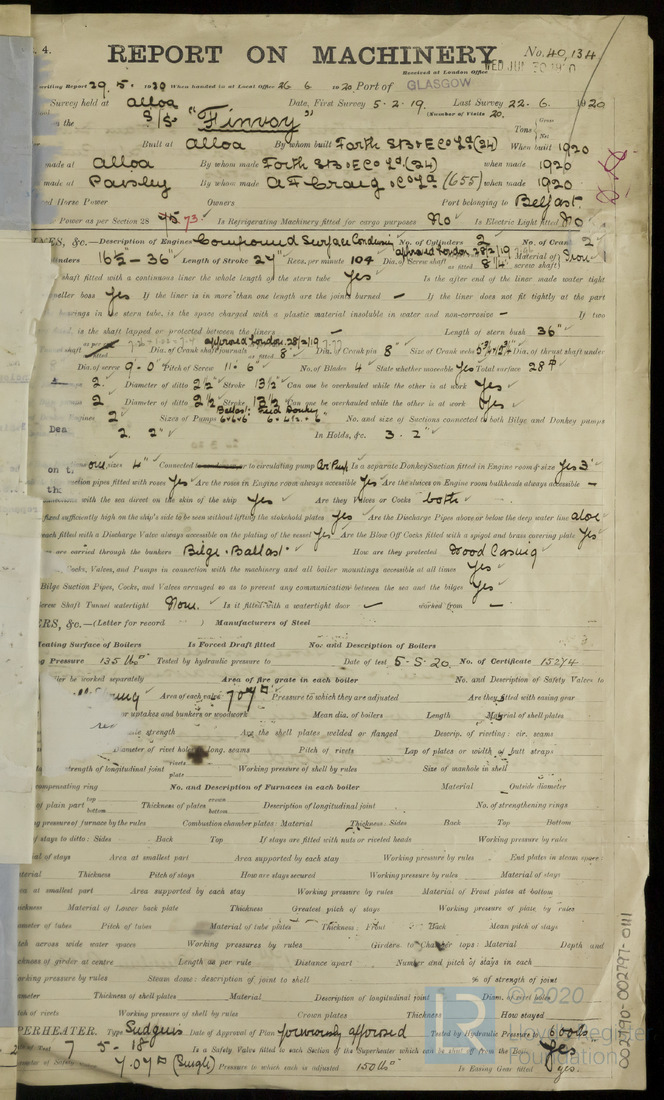 4.
REPORT ON MACHINERY
No. 40,134
Received at London Office WED. JUN 30 1920
writing Report 29. 5. 1920 When handed in at Local Office 26 6 1920 Port of GLASGOW
Survey held at Alloa Date, First Survey 5-2-19. Last Survey 22-6. 1920
(Number of Visits 20.
on the S/S "Finvoy" Tons Gross Net
Built at Alloa By whom built Forth SB & E Co Ld (24) When built 1920
made at Alloa By whom made Forth SB & E Co Ld (24) when made 1920
made at Paisley By whom made A F Craig & Co Ld (655) when made 1920
Horse Power Owners Port belonging to Belfast
Power as per Section 28 75 73 Is Refrigerating Machinery fitted for cargo purposes No Is Electric Light fitted No
&c.—Description of Engines Compound Surface Condensing No. of Cylinders 2 No. of Cran 2
16½ - 36" Length of Stroke 24" Revs. per minute 104 Dia. of Screw shaft approved London 28/2/19 as fitted 8¼" Material of screw shaft) Iron
shaft fitted with a continuous liner the whole length of the stern tube Yes Is the after end of the liner made water tight
propeller boss Yes If the liner is in more than one length are the joints burned — If the liner does not fit tightly at the part
bearings in the stern tube, is the space charged with a plastic material insoluble in water and non-corrosive — If two
is the shaft lapped or protected between the liners Length of stern bush 36"
approved London 28/2/19 7.77
Dia. of Crank shaft journals as fitted 8" Dia. of Crank pin 8" Size of Crank webs Dia. of thrust shaft under
Dia. of screw 9-0 Pitch of Screw 11-6" No. of Blades 4 State whether moveable Yes Total surface 28
2 Diameter of ditto 2½ Stroke 13½ Can one be overhauled while the other is at work Yes
2 Diameter of ditto 2½ Stroke 13½ Can one be overhauled while the other is at work Yes
Engines 2 Sizes of Pumps Ballast 6x6x6 Feed Donkey 6.4½.6 No. and size of Suctions connected to both Bilge and Donkey pumps
Dea 2. 2" In Holds, &c. 3-2"
one sizes 4" Connected to circulating pump Is a separate Donkey Suction fitted in Engine room & size Yes 3"
suction pipes fitted with roses Yes Are the roses in Engine room always accessible Yes Are the sluices on Engine room bulkheads always accessible —
connections with the sea direct on the skin of the ship Yes Are they Valves or Cocks both
fixed sufficiently high on the ship's side to be seen without lifting the stokehold plates Yes Are the Discharge Pipes above or below the deep water line above
each fitted with a Discharge Valve always accessible on the plating of the vessel Yes Are the Blow Off Cocks fitted with a spigot and brass covering plate Yes
are carried through the bunkers Bilge & Ballast How are they protected Wood Casing
Cocks, Valves, and Pumps in connection with the machinery and all boiler mountings accessible at all times Yes
Bilge Suction Pipes, Cocks, and Valves arranged so as to prevent any communication between the sea and the bilges Yes
Screw Shaft Tunnel watertight None. Is it fitted with a watertight door — worked from —
ERS, &c.—(Letter for record ) Manufacturers of Steel
Heating Surface of Boilers Is Forced Draft fitted No. and Description of Boilers
Pressure 135 lbs Tested by hydraulic pressure to Date of test 5-5-20. No. of Certificate 15274
be worked separately Area of fire grate in each boiler No. and Description of Safety Valves to
Spring Area of each valve 7.07 Pressure to which they are adjusted Are they fitted with easing gear
or uptakes and bunkers or woodwork Mean dia. of boilers Length Material of shell plates
strength Are the shell plates welded or flanged Descrip. of riveting: cir. seams
Diameter of rivet holes long. seams Pitch of rivets Lap of plates or width of butt straps
strength of longitudinal joint rivets plate Working pressure of shell by rules Size of manhole in shell
compensating ring No. and Description of Furnaces in each boiler Material Outside diameter
of plain part top bottom Thickness of plates crown bottom Description of longitudinal joint No. of strengthening rings
pressure of furnace by the rules Combustion chamber plates: Material Thickness: Sides Back Top Bottom
of stays to ditto: Sides Back Top If stays are fitted with nuts or riveted heads Working pressure by rules
of stays Area at smallest part Area supported by each stay Working pressure by rules End plates in steam space:
Material Thickness Pitch of stays How are stays secured Working pressure by rules Material of stays
at smallest part Area supported by each stay Working pressure by rules Material of Front plates at bottom
Thickness Material of Lower back plate Thickness Greatest pitch of stays Working pressure of plate by rules
Diameter of tubes Pitch of tubes Material of tube plates Thickness: Front Back Mean pitch of stays
Pitch across wide water spaces Working pressures by rules Girders to Chamber tops: Material Depth and
thickness of girder at centre Length as per rule Distance apart Number and pitch of stays in each
Working pressure by rules Steam dome: description of joint to shell % of strength of joint
Diameter Thickness of shell plates Material Description of longitudinal joint Diam. of rivet holes
Pitch of rivets Working pressure of shell by rules Crown plates Thickness How stayed
SUPERHEATER. Type Sudgens Date of Approval of Plan previously approved Tested by Hydraulic Pressure to 600 lbs
Date of Test 7-5-18 Is a Safety Valve fitted to each Section of the Superheater which can be shut off from the Boiler Yes
Diameter of Safety 7.07 (Single) Pressure to which each is adjusted 150 lbs Is Easing Gear fitted Yes.
LR © 2020
Lloyd's Register
Foundation
002790-002797-0111